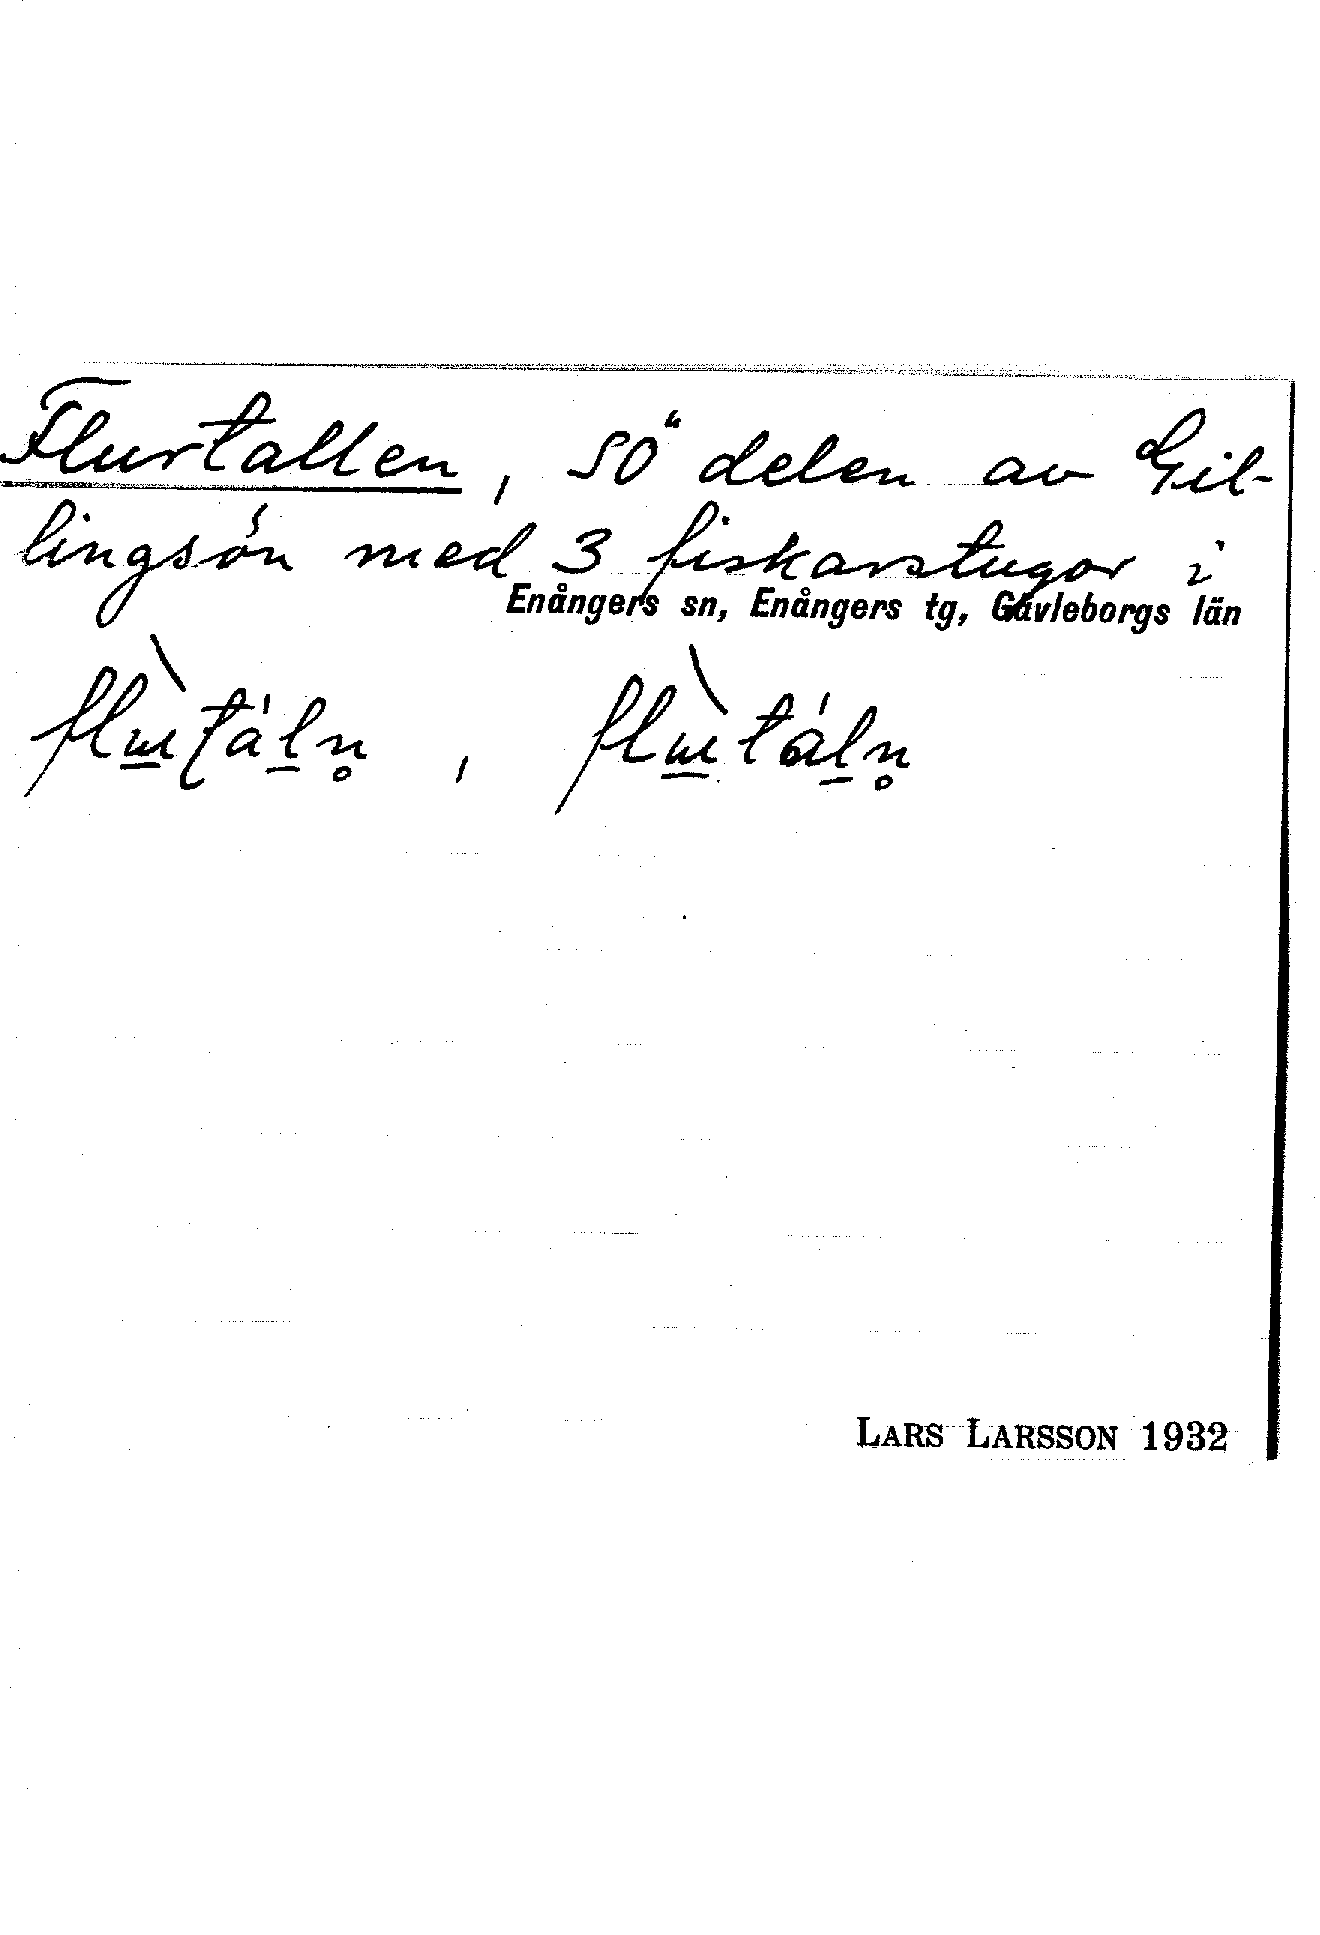 Flurtallen, SÖ delen av Gil-
lingsön med 3 fiskarstugor i
Enångers sn, Enångers tg, Gävleborgs län
LARS LARSSON 1932